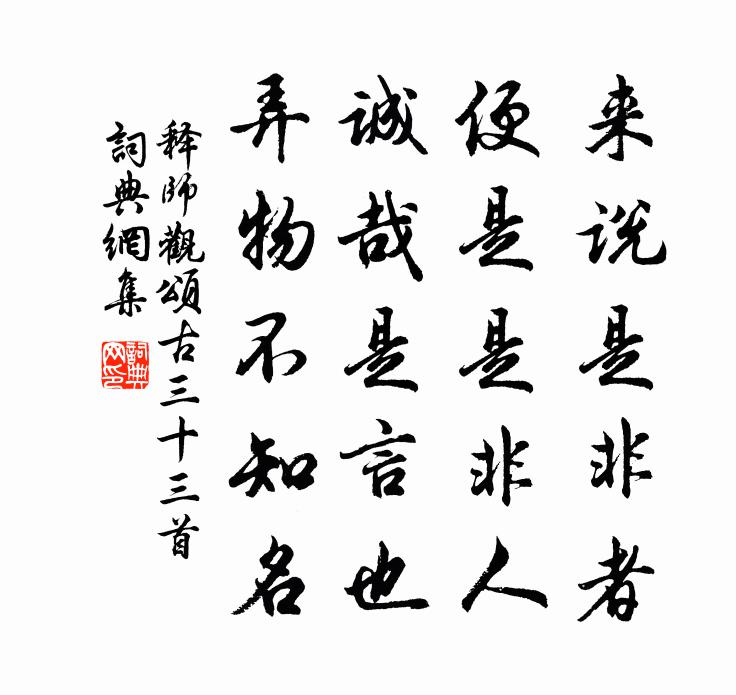 来说是非者
便是是非人
诚哉是言也
弄物不知名
释师觀頌古三十三首
詞典網集
詞典
网印